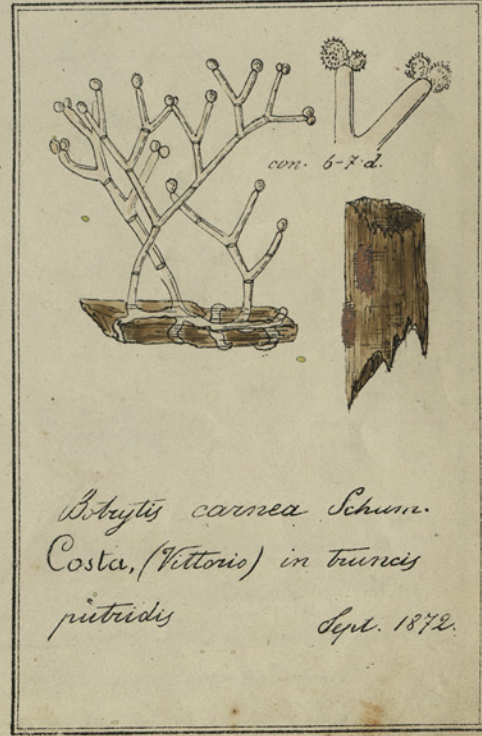 con. 6-7 d.
Botrytis carnea Schum.
Costa, (Vittorio) in truncis
putridis
Sept. 1872.